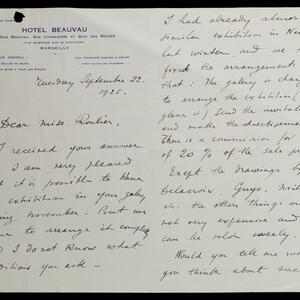 HOTEL BEAUVAU
Rue Beauvau, Rue Cannebière et Quai des Belges
MARSEILLE
Tuesday September 22.
1925.
Dear Miss. Roullier,
I received your answer
I am very pleased
it is possible to have
exhibition in your galy
ing november. But we
to arrange it comple
I do not know what
ditions you ask —
I had already almos
similar exhibition in Ne
last winter, and we
fixed the arrangements
that: The galery is charg
to arrange the exhibition,
glass it, send the invitat
and make the advertiseme
There is a commission for
of 20 % of the sale pr
Exept the drawings by
Delacroix, Guys,
etc. the other Things
not very expensive and
can be solen easely.
Would you tell me w
you think about suc